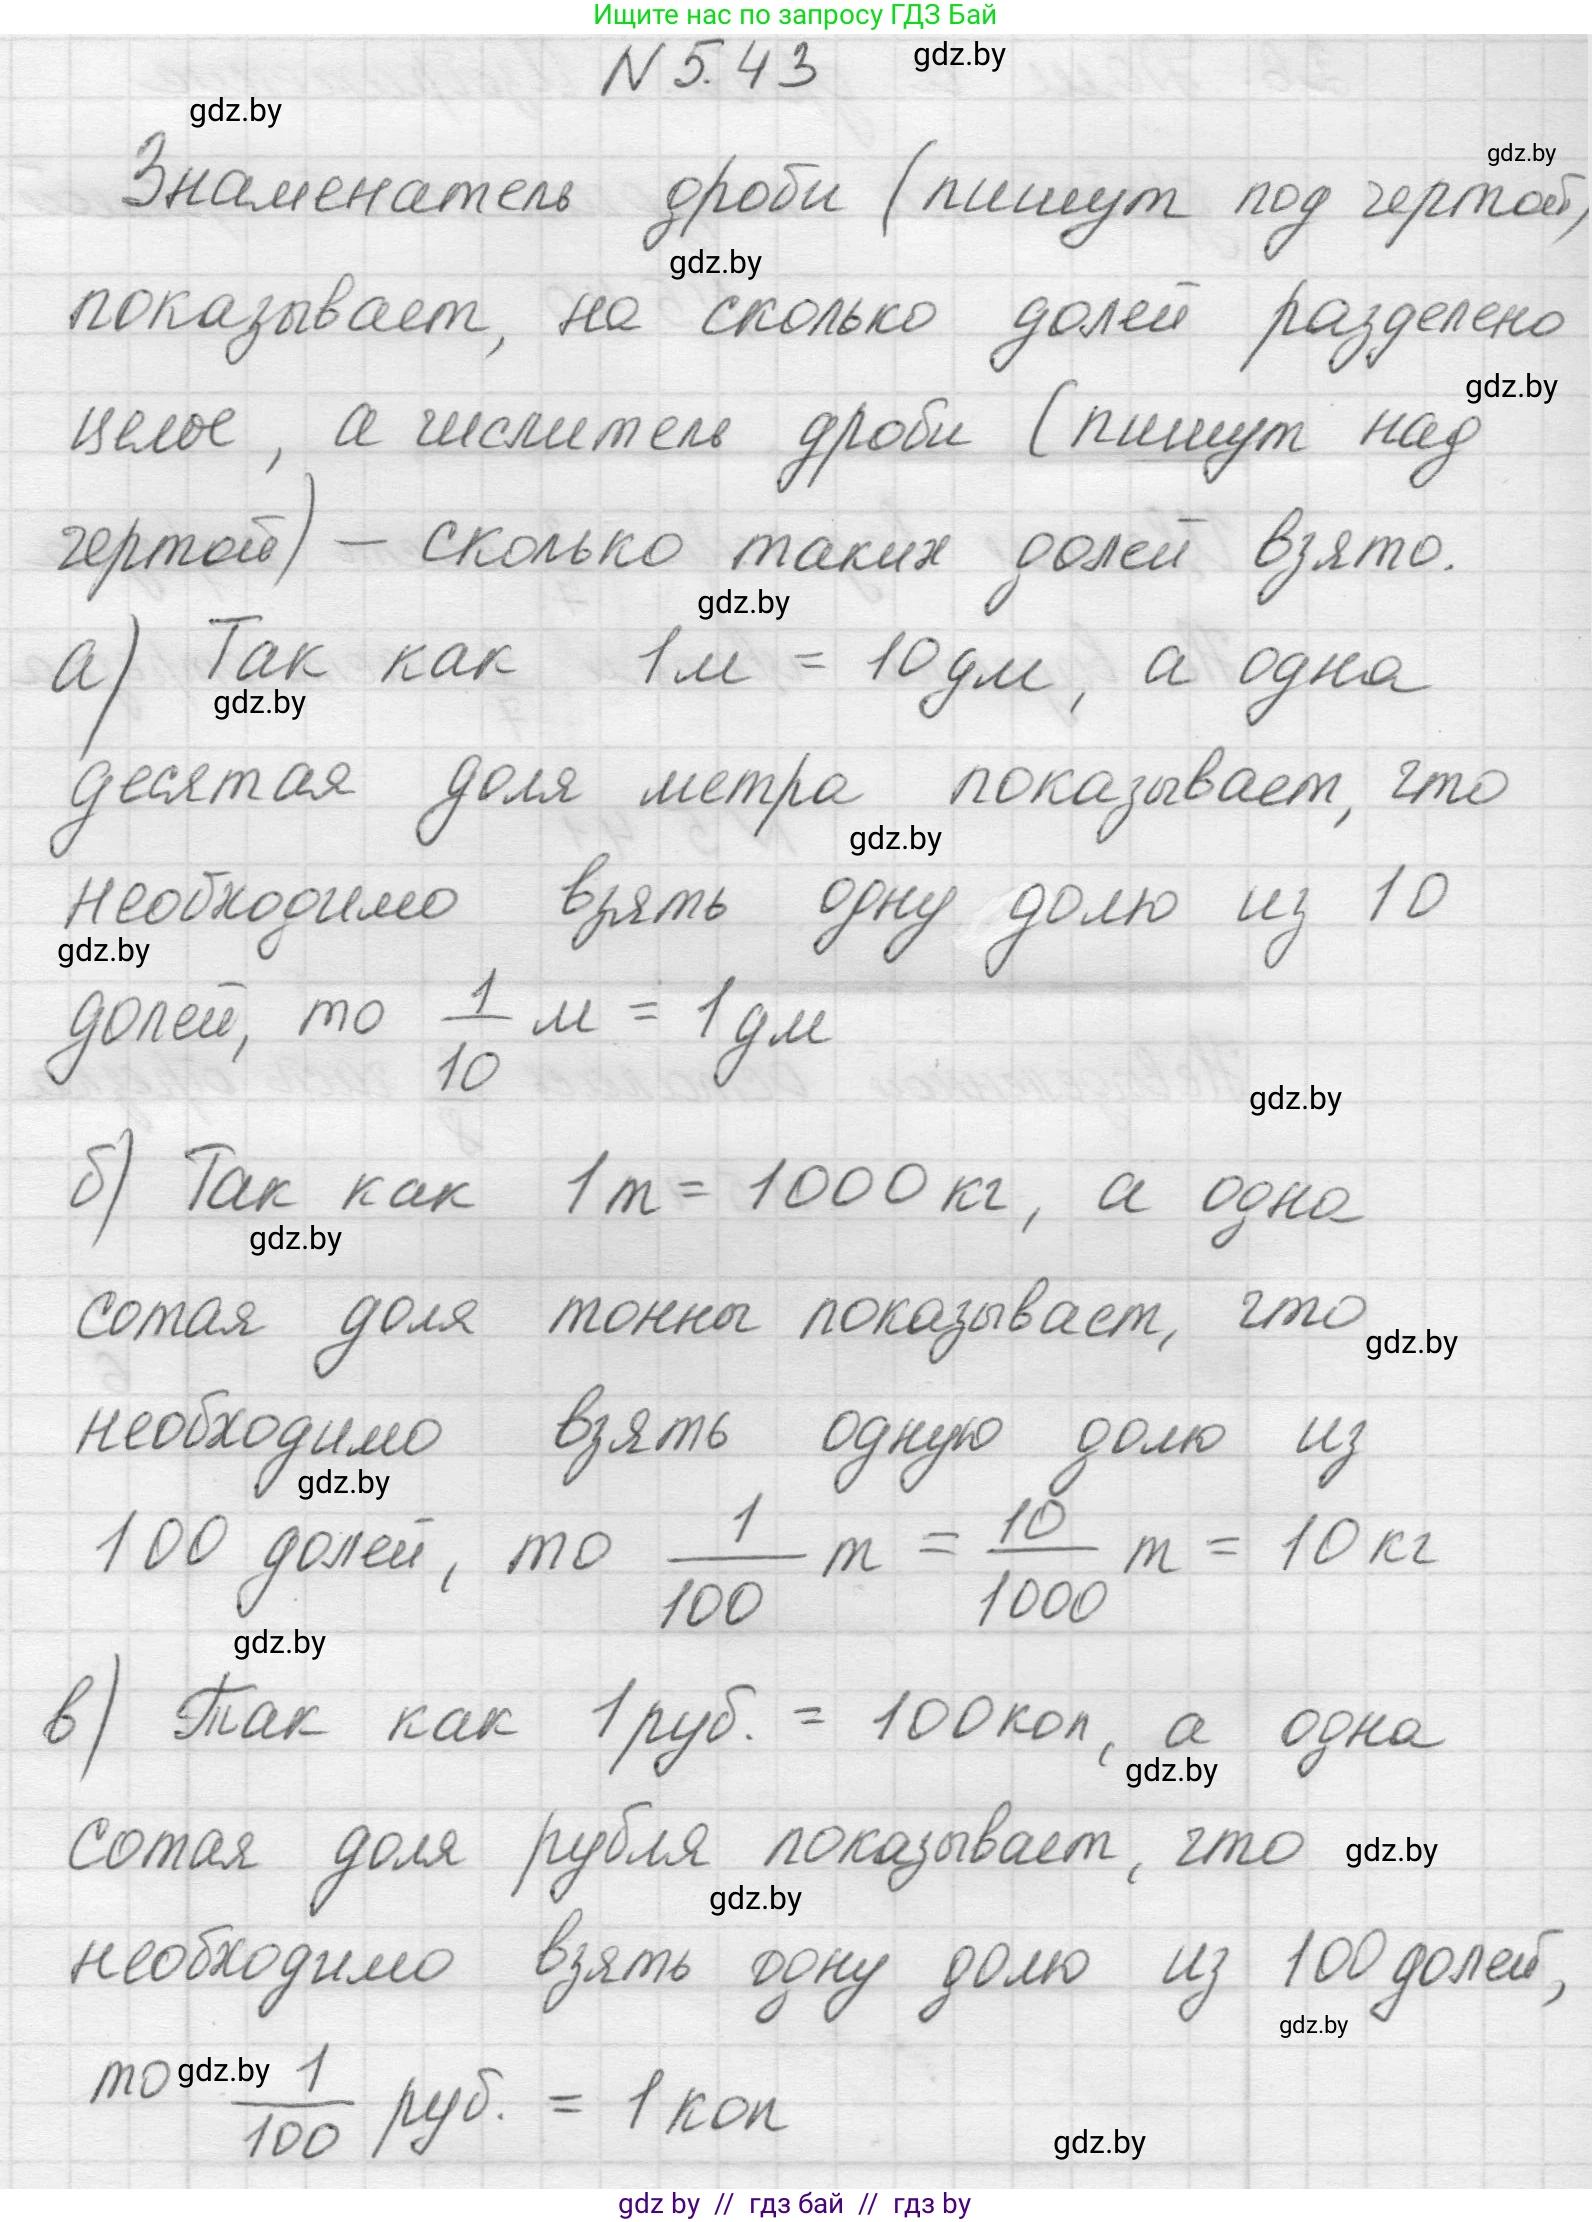 Ищите нас по запросу ГДЗ Бай
N 5.43
gdz.by
gdz.by
gdz.by
Знаменатель дроби (пишут под чертой,
gdz.by
показывает, на сколько долей разделено
gdz.by
целое, а числитель дроби (пишут над
чертой) – сколько таких долей взято.
gdz.by
а) Так как 1м = 10дм, а одна
gdz.by
десятая доля метра показывает, что
gdz.by
необходимо взять одну долю из 10
gdz.by
долей, то 1/10 м = 1дм
gdz.by
б) Так как 1т = 1000кг, а одна
gdz.by
сотая доля тонны показывает, что
gdz.by
необходимо взять одную долю из
gdz.by
100 долей, то 1/100 т = 10/1000 т = 10кг
gdz.by
в) Так как 1руб. = 100коп, а одна
gdz.by
сотая доля рубля показывает, что
gdz.by
gdz.by
необходимо взять одну долю из 100 долей,
gdz.by
то 1/100 руб. = 1коп
gdz.by
gdz.by
gdz by // гдз бай // гдз by